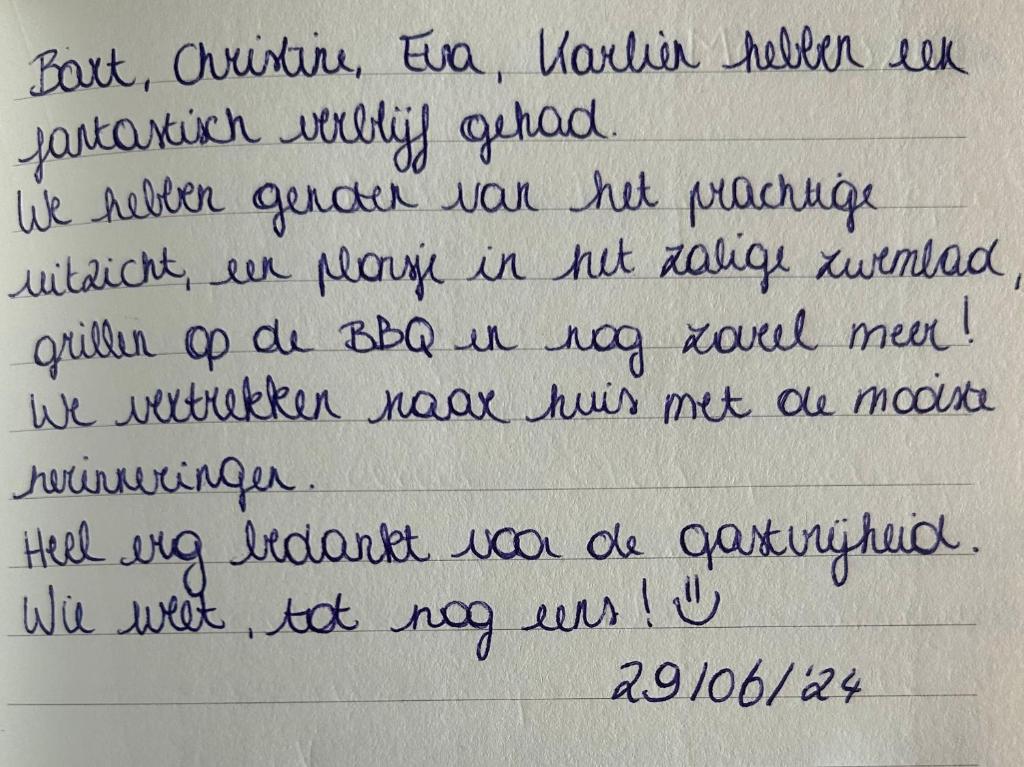 Bart, Christine, Eva, Karlien hebben een
fantastisch verblijf gehad.
We hebben genoten van het prachtige
uitzicht, een plonsje in het zalige zwembad,
grillen op de BBQ en nog zoveel meer!
We vertrekken naar huis met de mooiste
herinneringen.
Heel erg bedankt voor de gastvrijheid.
Wie weet, tot nog eens! :)
29/06/'24